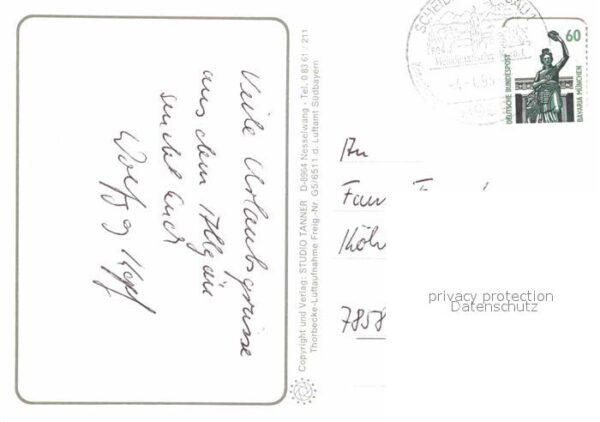 Viele Urlaubsgrüsse
aus dem Allgäu
sendet Euch
Wolfg g Hopf
Copyright und Verlag: STUDIO TANNER D-8964 Nesselwang - Tel. 0 83 61 / 211
Thorbecke-Luftaufnahme Freig.-Nr. G5/6511 d. Luftamt Südbayern
60
DEUTSCHE BUNDESPOST
BAVARIA MÜNCHEN
An
Fam
Köh
7858
privacy protection
Datenschutz